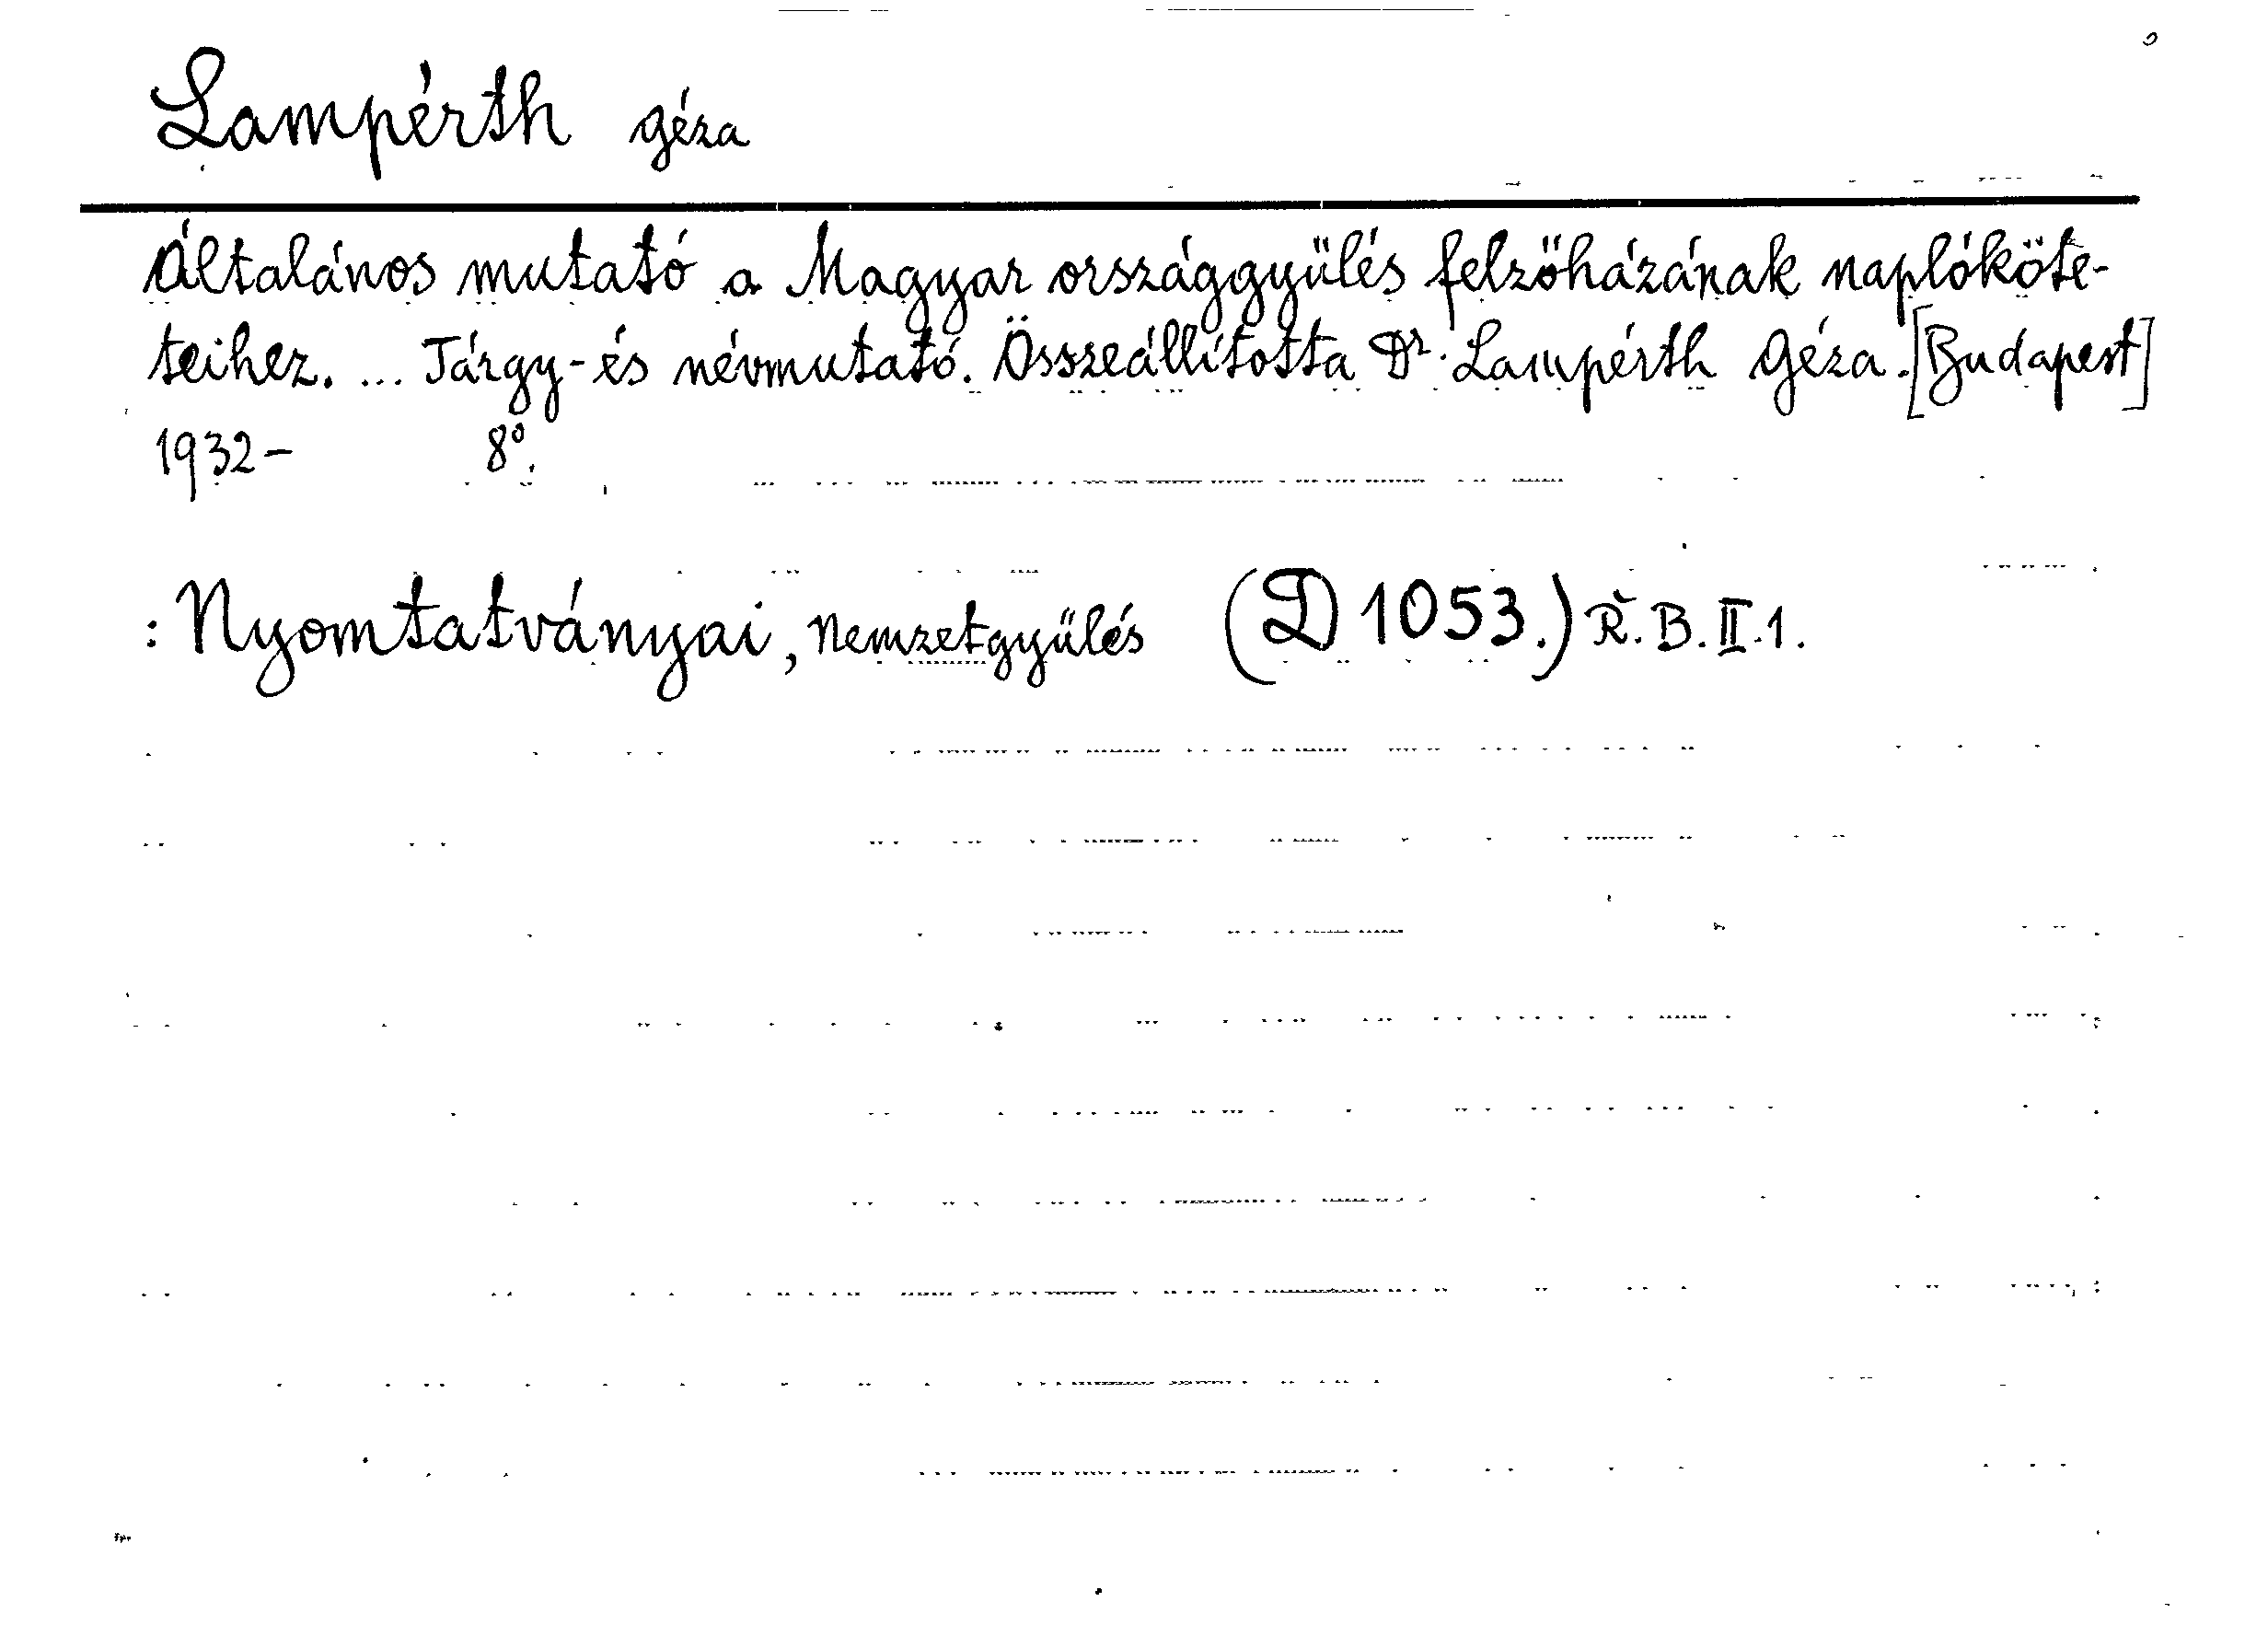 Lampérth Géza
Általános mutató a Magyar országgyülés felsőházának naplóköte-
teihez. ... Tárgy- és névmutató. Összeállította Dr. Lampérth Géza. [Budapest]
1932- 8°.
: Nyomtatványai, Nemzetgyűlés (D 1053.) Ř. B. II. 1.